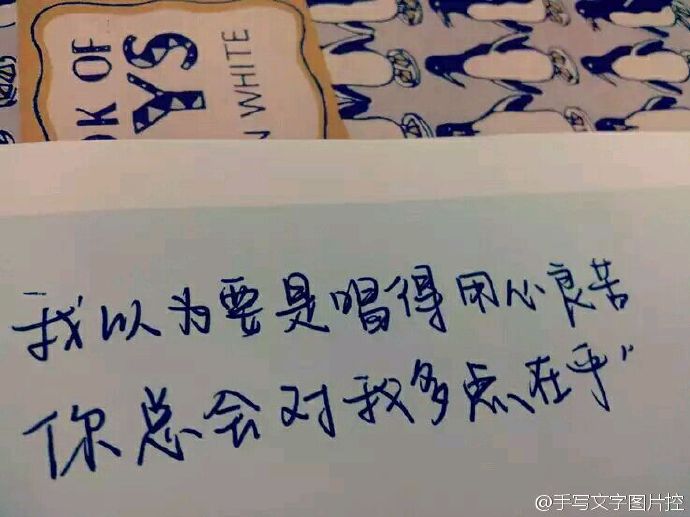 OK OF
YS
N WHITE
我以为要是唱得用心良苦
你总会对我多点在乎"
@手写文字图片控